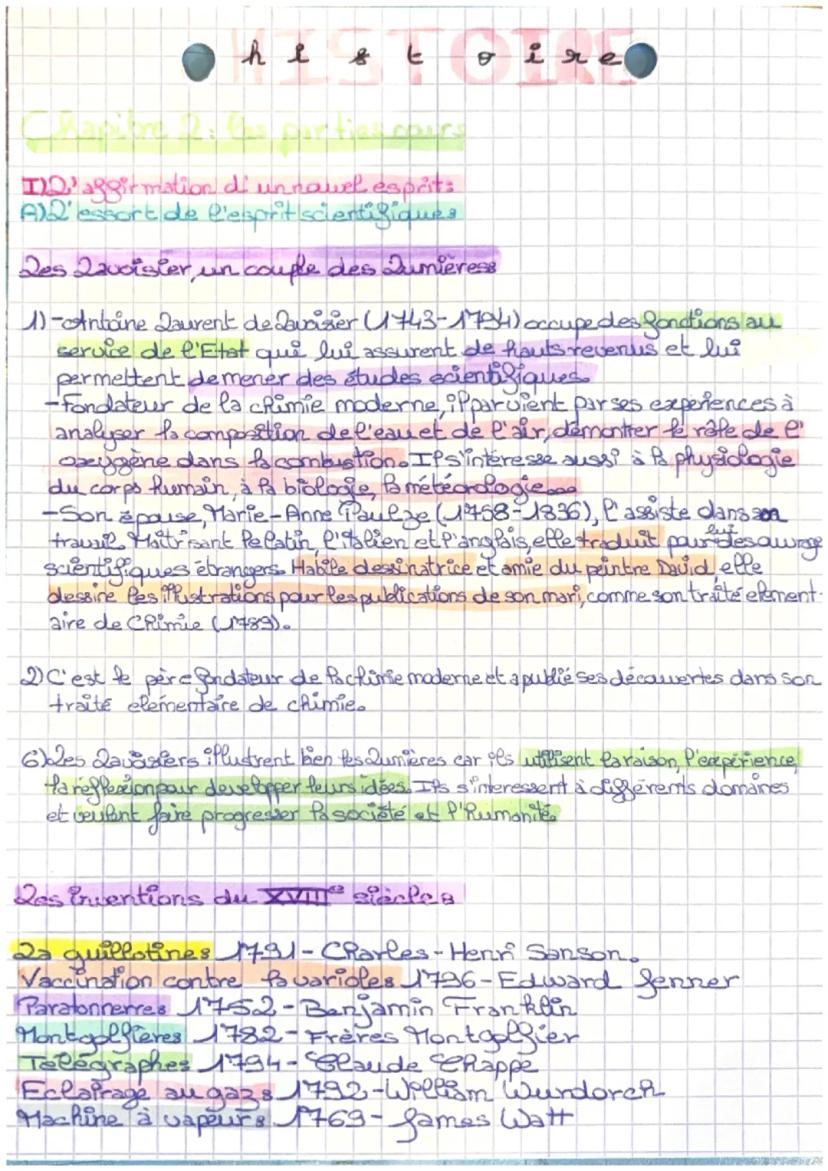 HISTOIRE
histoire
Chapitre 2: les parties cours
I) L'affirmation d'un nouvel esprit:
A) L'essort de l'esprit scientifique:
Les Lavoisier, un couple des Lumières:
1) - Antoine Laurent de Lavoisier (1743-1794) occupe des fonctions au
service de l'Etat qui lui assurent de hauts revenus et lui
permettent de mener des études scientifiques.
- Fondateur de la chimie moderne, il parvient par ses experiences à
analyser la composition de l'eau et de l'air, démontrer le rôle de l'
oxygène dans la combustion. Il s'intéresse aussi à la physiologie
du corps humain, à la biologie, la météorologie...
- Son épouse, Marie-Anne Paulze (1758-1836), l'assiste dans son
travail. Maîtrisant le latin, l'italien et l'anglais, elle traduit pour lui des ouvrage
scientifiques étrangers. Habile dessinatrice et amie du peintre David, elle
dessine les illustrations pour les publications de son mari, comme son traité element-
aire de Chimie (1789).
2) C'est le père fondateur de la chimie moderne et a publié ses découvertes dans son
traité elémentaire de chimie.
6) Les Lavoisiers illustrent bien les Lumières car ils utilisent la raison, l'expérience,
la réflexion pour developper leurs idées. Ils s'interessent à différents domaines
et veulent faire progresser la société et l'Humanité.
Les inventions du XVIIIe siècle:
La guillotine: 1791 - Charles-Henri Sanson.
Vaccination contre la variole: 1796 - Edward Jenner
Paratonnerre: 1752 - Benjamin Franklin
Montgolfière: 1782 - Frères Montgolfier
Télégraphe: 1794 - Claude Chappe
Eclairage au gaz: 1792 - William Wurdorch
Machine à vapeur: 1769 - James Watt